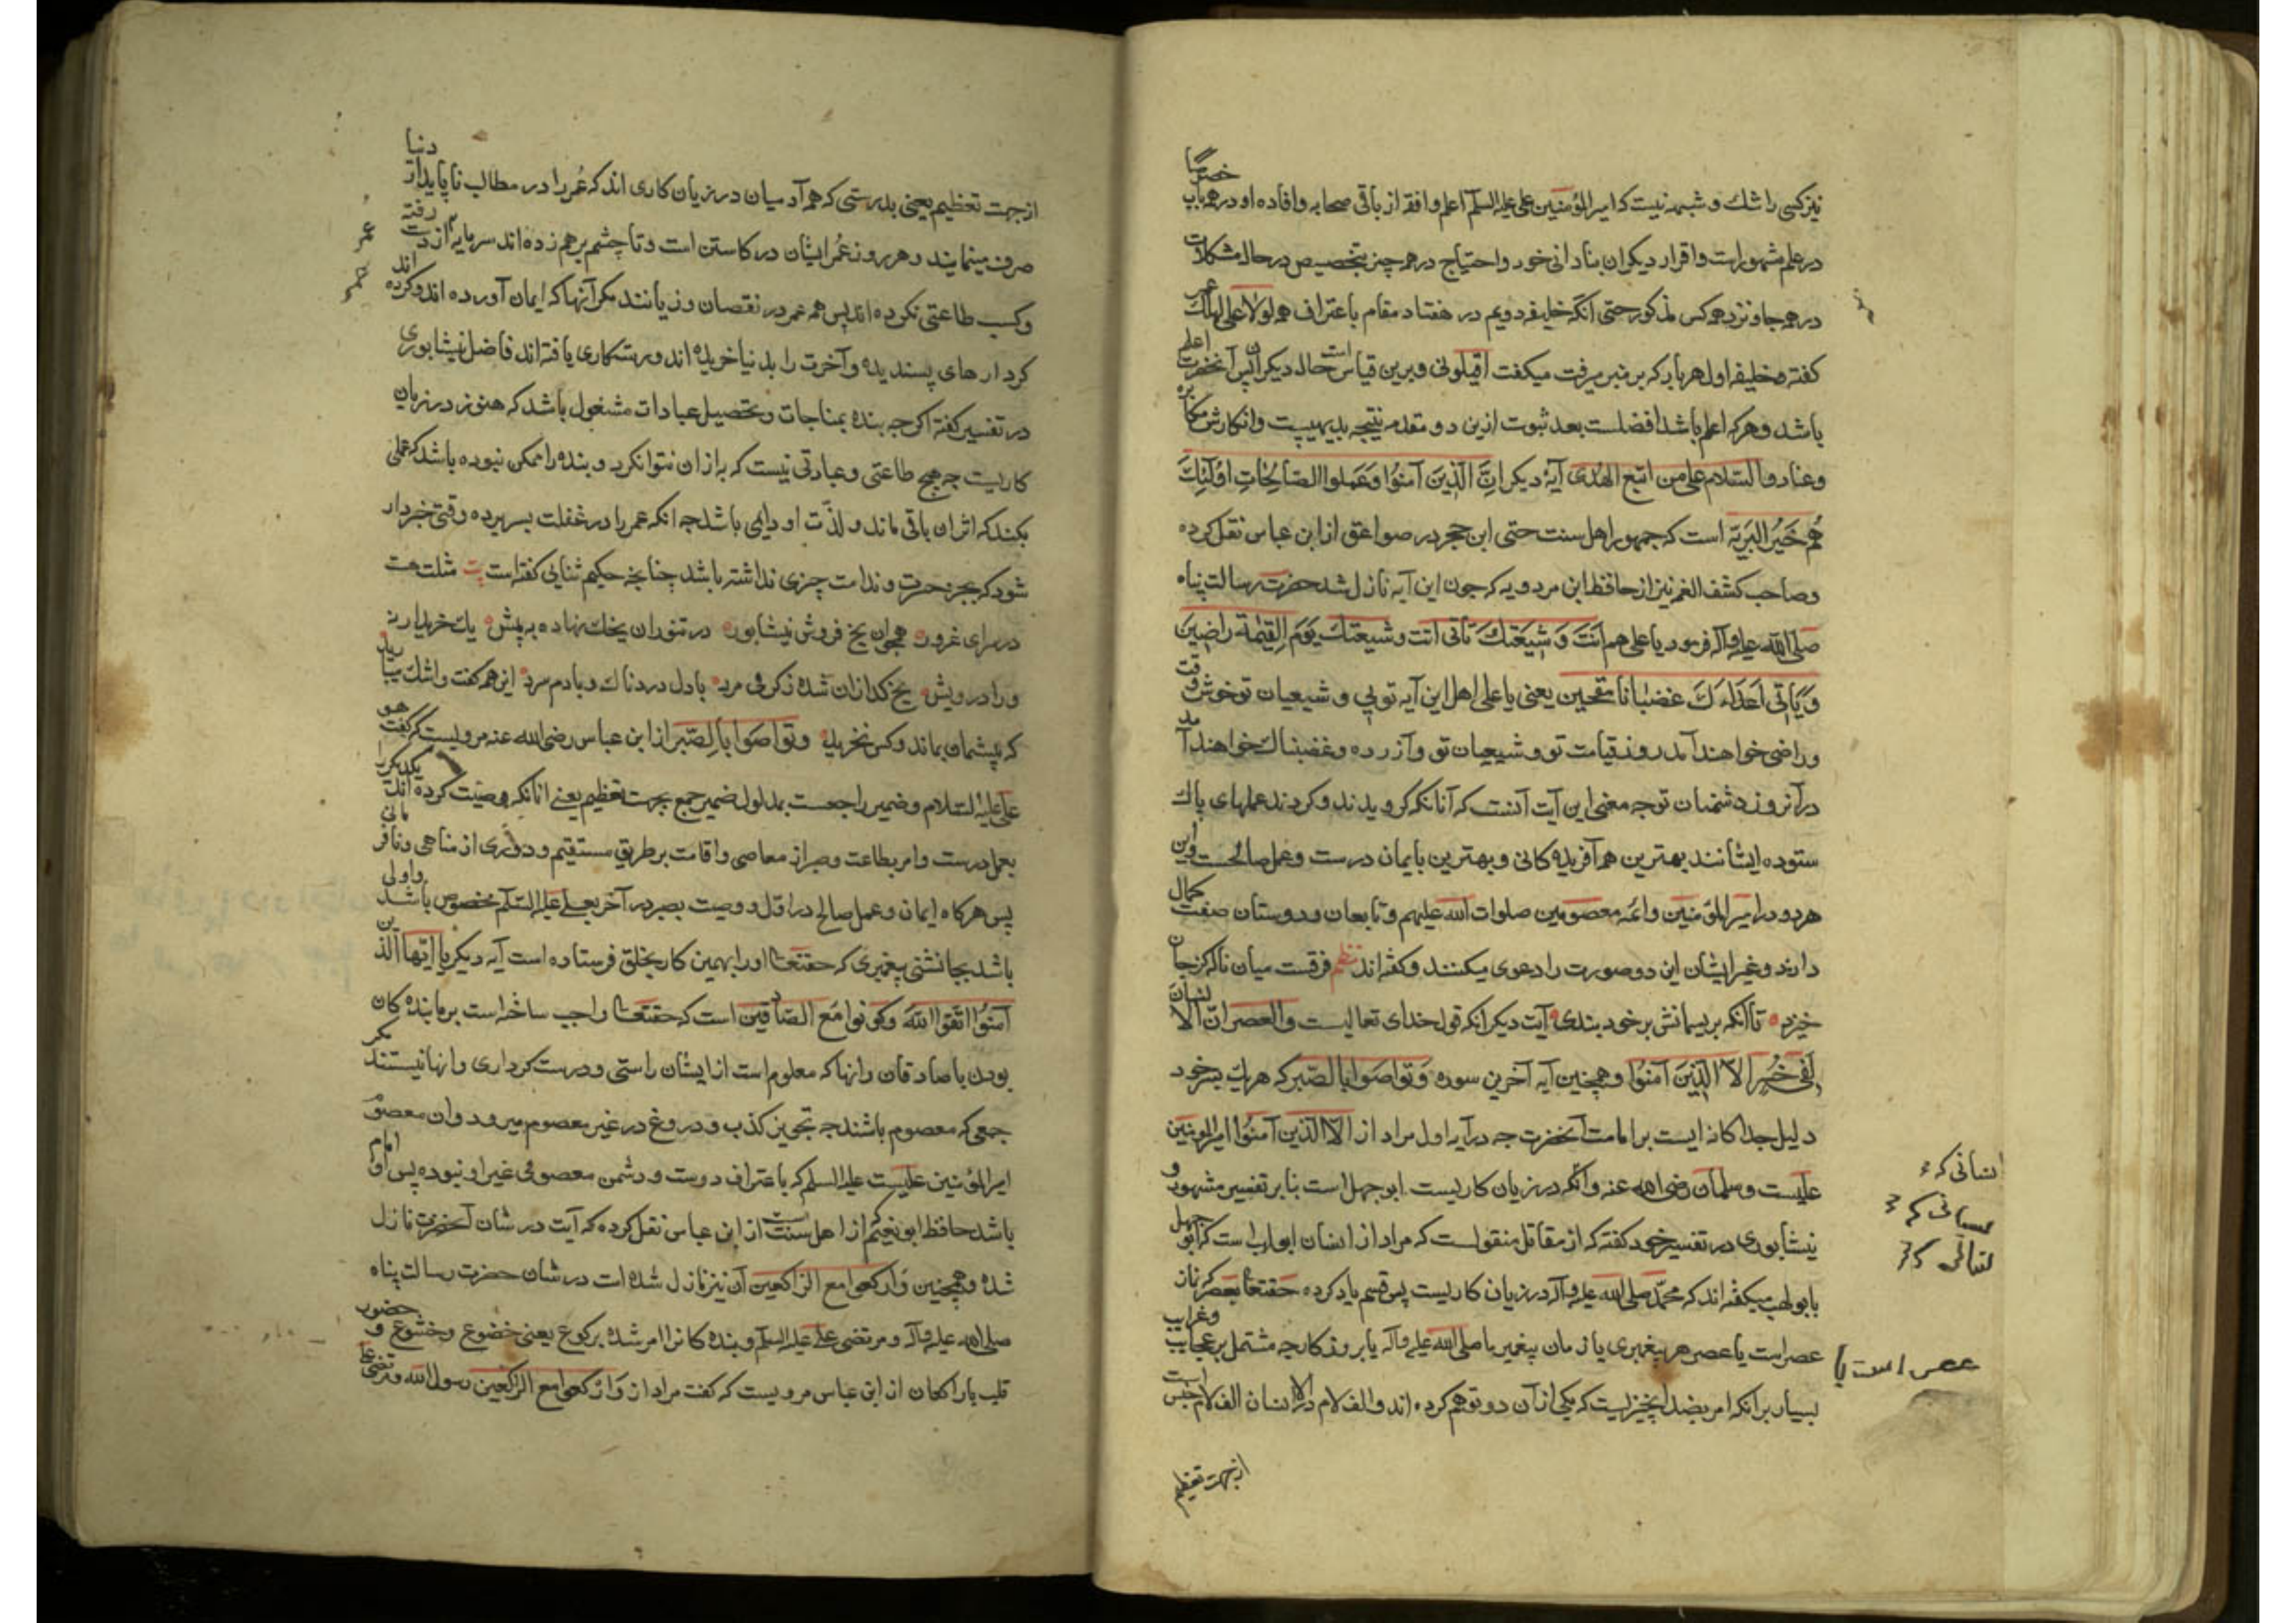 نیز کسی را شك و شبهه نیست که امیر المؤمنین علی علیه السلم اعلم وافقه از باقی صحابه وافاده او در هر باب خصوصا
در علم مشهور است واقرار دیکران بنادانی خود واحتیاج در همه چیز بتخصیص در حال مشکلات
در همه جا ونزد همه کس مذکور حتی آنکه خلیفه دویم در هفتاد مقام باعتراف همه لولا علی لهلك عمر
کفته وخلیفه اول هر بار که بر منبر میرفت میکفت اقیلونی وبرین قیاس است حال دیکران پس آنحضرت اعلم
باشد وهر که اعلم باشد افضلست بعد ثبوت ازین دو مقدمه نتیجه بدیهیست وانکارش مکابره
وعناد والسلام علی من اتبع الهدی آیهٔ دیکر اِنَّ الَّذینَ آمَنُوا وَعَمِلوا الصّالِحٰاتِ اُولٰئِكَ
هُم خَیرُ البَرِیّه است که جمهور اهل سنت حتی ابن حجر در صواعق از ابن عباس نقل کرده
وصاحب کشف الغمه نیز از حافظ ابن مردویه که جون این آیه نازل شد حضرت رسالت پناه
صلی الله علیه وآله فرمود یا علی هم اَنتَ وَ شیعَتُكَ تَأتی انت وشیعتك یَومَ القِیٰمَة راضینَ
وَیَأتی اَعدٰاءكَ غضبانا مقمحین یعنی یا علی اهل این آیه تویی و شیعیان تو خوش وقت
وراضی خواهند آمد روز قیامت تو وشیعیان تو وآزرده وغضبناك خواهند آمد
در آنروز دشمنان تو جه معنی این آیت آنست که آنانکه کرویدند وکردند عملهای پاك
ستوده ایشانند بهترین همه آفریدهکانی وبهترین بایمان درست وعمل صالحست واین
هر دو در امیر المؤمنین وائمه معصومین صلوات الله علیهم وتابعان ودوستان صفت کمال
دارند وغیر ایشان این دو صورت را دعوی میکنند وکفته اند نظم فرقست میان ناله کز جان
خیزد تا آنکه بریسمانش بر خود بندی آیت دیکر آنکه قول خدای تعالیست والعصر انّ الانسان
لَفی خُسرٍ الّا الّذینَ آمَنُوا وهمچنین آیه آخرین سوره وَتَواصَوا بالصّبر که هر یك بسر خود
دلیل جداکانه ایست بر امامت آنحضرت جه در آیه اول مراد از الّا الّذین آمَنُوا امیر المؤمنین
علیست وسلمان رضی الله عنه وآنکه در زیان کاریست ابوجهل است بنابر تفسیر مشهور و
نیشابوری در تفسیر خود کفته که از مقاتل منقولست که مراد از انسان ابولهب است که ابوجهل
بابولهب میکفته اند که محمّد صلی الله علیه وآله در زیان کاریست پس قسم یاد کرده حقتعالی بعصر که نماز
عصر است یا عصر هر پیغمبری یا زمان پیغمبر ما صلی الله علیه وآله یا بروزکار جه مشتمل بر عجایب وغرایب
بسیار بر آنکه امر بضد آنچیزیست که یکی از آن دو توهم کرده اند والف لام در الانسان الف لام جنس است
از جهت تعظیم
انسانی که
عصر است یا
از جهت تعظیم یعنی بدرستی که همه آدمیان در زیان کاری اند که عُمر را در مطالب ناپایدار دنیا
صرف مینمایند وهر روز عُمر ایشان در کاستن است وتا چشم بر هم زده اند سرمایه از دست رفته
وکسب طاعتی نکرده اند پس همه عمر در نقصان وزیانند مکر آنها که ایمان آورده اند وکرده اند
کردارهای پسندیده وآخرت را بدنیا خریده اند ورستکاری یافته اند فاضل نیشابوری
در تفسیر کفته اکرجه بنده بمناجات وتحصیل عبادات مشغول باشد که هنوز در زیان
کاریست جه هیج طاعتی وعبادتی نیست که به از ان نتوانکرد وبنده را ممکن نبوده باشد که عملی
بکند که اثر ان باقی ماند ولذّت او دایمی باشد جه انکه عمر را در غفلت بسر برده وقتی خبردار
شود که بجز حسرت وندامت چیزی نداشته باشد چنانچه حکیم ثنایی کفته است مثلت هست
در سرای غرور همچوان یخ فروش نیشابور در تموز ان یخك نهاده به پیش یك خریدار نه
ورا درویش یخ کدازان شده زکرمی مرد بادل دردناك وبادم سرد این همه کفت واشك میبارید
که پیشمان بماند وکس نخرید وتَواصَوا بالِصَّبر از ابن عباس رضی الله عنه مرویست که کفت هو
علی علیه السّلام وضمیر راجعست بمدلول ضمیر جمع بجهت تعظیم یعنی انانکه وصیّت کرده اند یکدیکر را
بعمل درست وامر بطاعت وصبر از معاصی واقامت بر طریق مستقیم ودوری از مناهی ونافرمانی
پس هرکاه ایمان وعمل صالح در اوّل ووصیت بصبر در آخر بعلی علیه السّلم مخصوص باشد واولی
باشد بجانشنی پیغمبری که حقتعالی اورا بهمین کار بخلق فرستاده است آیه دیکر یا ایّها الّذین
آمنُوا اتّقوا الله وکونوا مَعَ الصّادقین است که حقتعالی واجب ساخته است بر ما بندهکان
بودن با صادقان وانها که معلوم است از ایشان راستی ودرست کرداری وانها نیستند مکر
جمعی که معصوم باشند جه تجویز کذب ودروغ در غیر معصوم میرود وان معصوم
امیر المؤمنین علیست علیه السلم که باعتراف دوست ودشمن معصومی غیر او نبوده پس او امام
باشد حافظ ابو نعیم که از اهل سنت است از ابن عباس نقل کرده که آیت در شان آنحضرت نازل
شده وهمچنین وَارکعوا مع الراکعین آن نیز نازل شده است در شان حضرت رسالت پناه
صلی الله علیه وآله ومرتضی علی علیه السلم وبندهکانرا امر شده برکوع یعنی خضوع وخشوع وحضور
قلب با راکعان از ابن عباس مرویست که کفت مراد از وَارکعوا مع الراکعین رسول الله ومرتضی علی